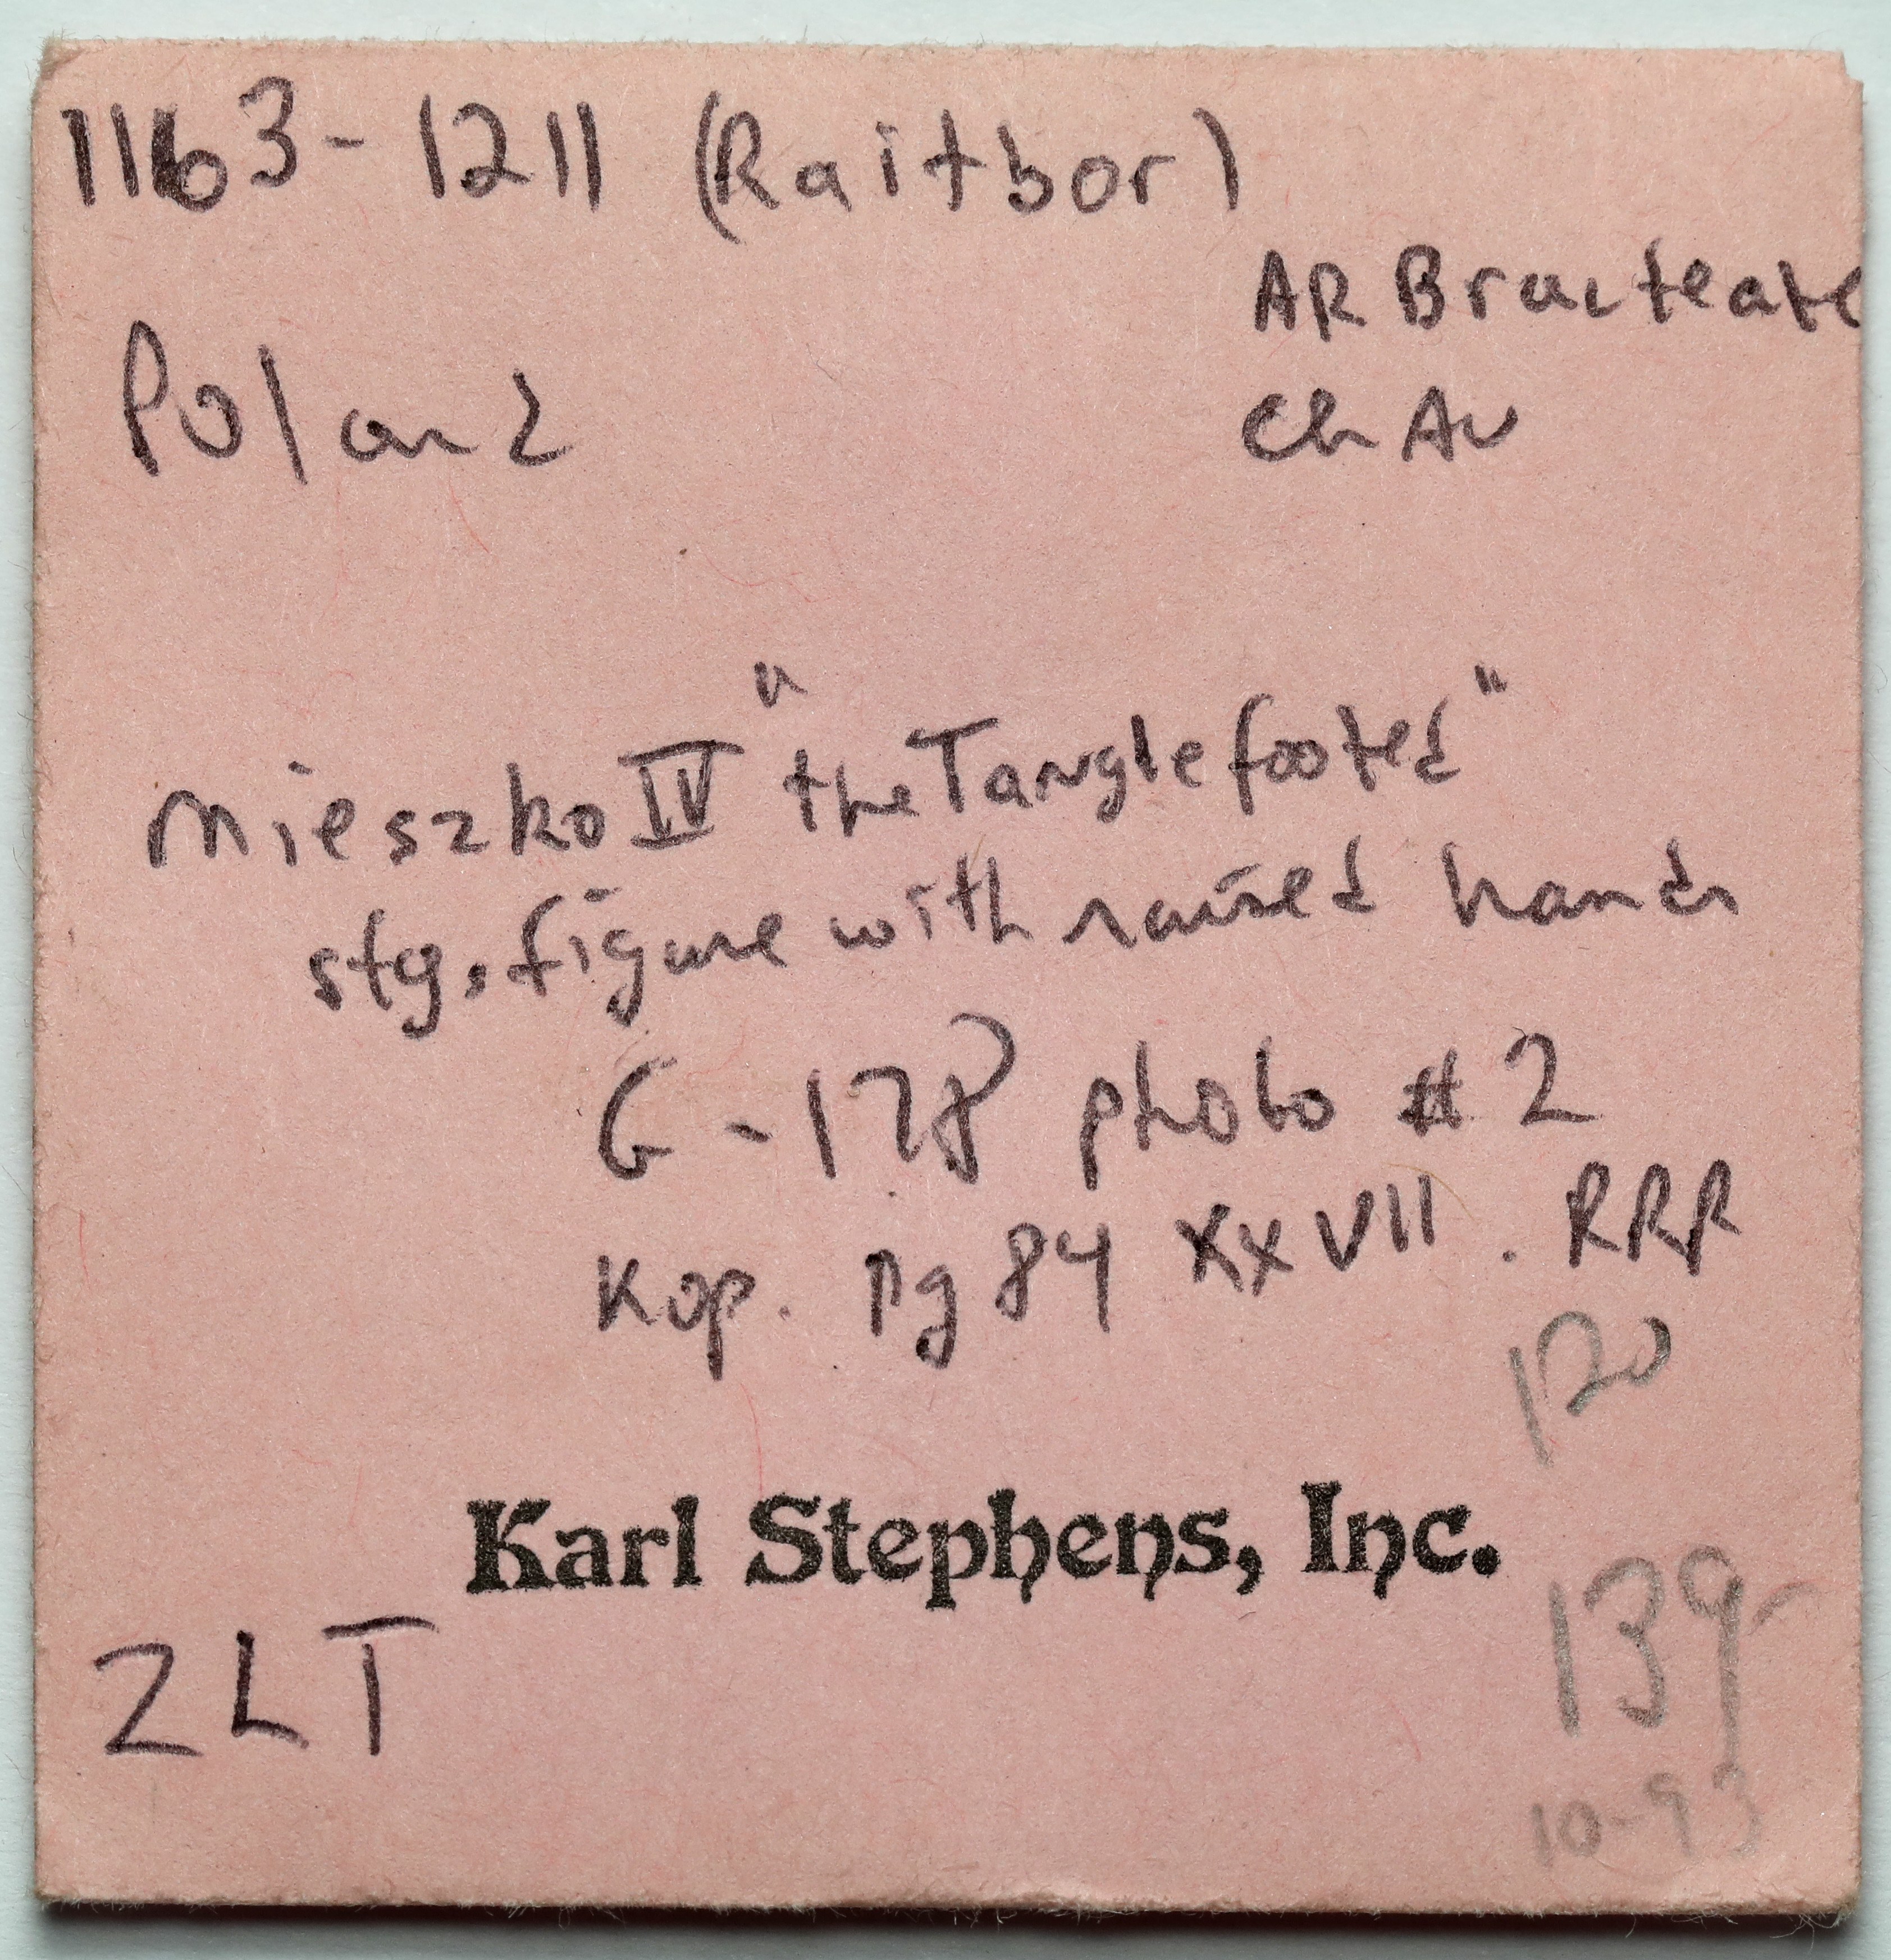 1163-1211 (Raitbor)
AR Bracteate
Poland
Ch AU
Mieszko IV "the Tanglefooted"
stg. figure with raised hands
G-178 photo #2
Kop. pg 84 XXVII. RRR
120
Karl Stephens, Inc.
139-
ZLT
10-93